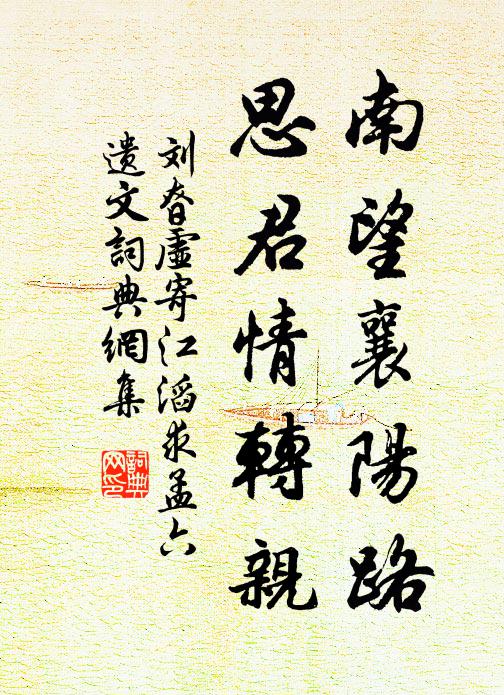 南望襄陽路
思君情轉親
刘昚虛寄江滔求孟六
遗文詞典網集
詞典
网印